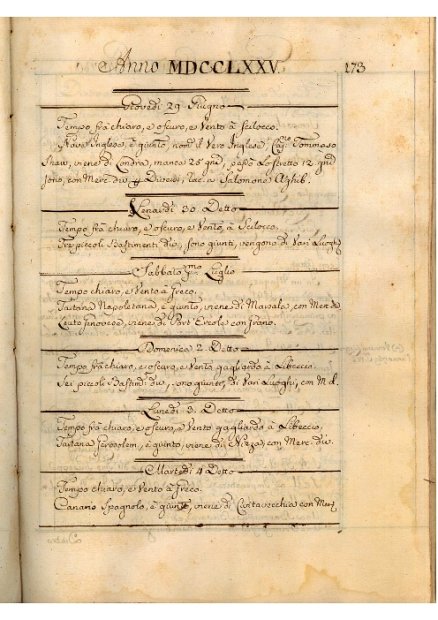 Anno MDCCLXXV. 173
Giovedi 29 Giugno
Tempo frà chiaro, e oscuro, e Vento à Scilocco.
Nave Inglese, è giunto, nom.ta il Vero Inglese, Cap.no Tommaso
Shaw, viene di Londra, manca 28 gni, passò Lo Stretto 12. gni
sono, con Merc. div. p Diversi, rac. a Salomone Aghib.
Venardi 30 Detto
Tempo frà chiaro, e oscuro, e Vento à Scilocco.
Tre piccoli Bastimenti div. sono giunti, vengono di Vari Luoghi
Sabbato p.mo Luglio
Tempo chiaro, e Vento à Greco.
Tartana Napoletana, è giunto, viene di Marsala, con Merc. div.
Leuto Genovese, viene di Port Ercole con Grano.
Domenica 2. Detto
Tempo frà chiaro, e oscuro, e Vento gagliardo à Libeccio.
Sei piccoli Bastim. div. sono giunti, di Vari Luoghi, con M. d.
Lunedi 3. Detto
Tempo frà chiaro, e oscuro, e Vento gagliardo à Libeccio.
Tartana Gerosolem. è giunto, viene di Nizza, con Merc. div.
Martedi 4 Detto
Tempo chiaro, e Vento à Greco.
Canario Spagnolo, è giunto, viene di Civitavecchia con Merc.